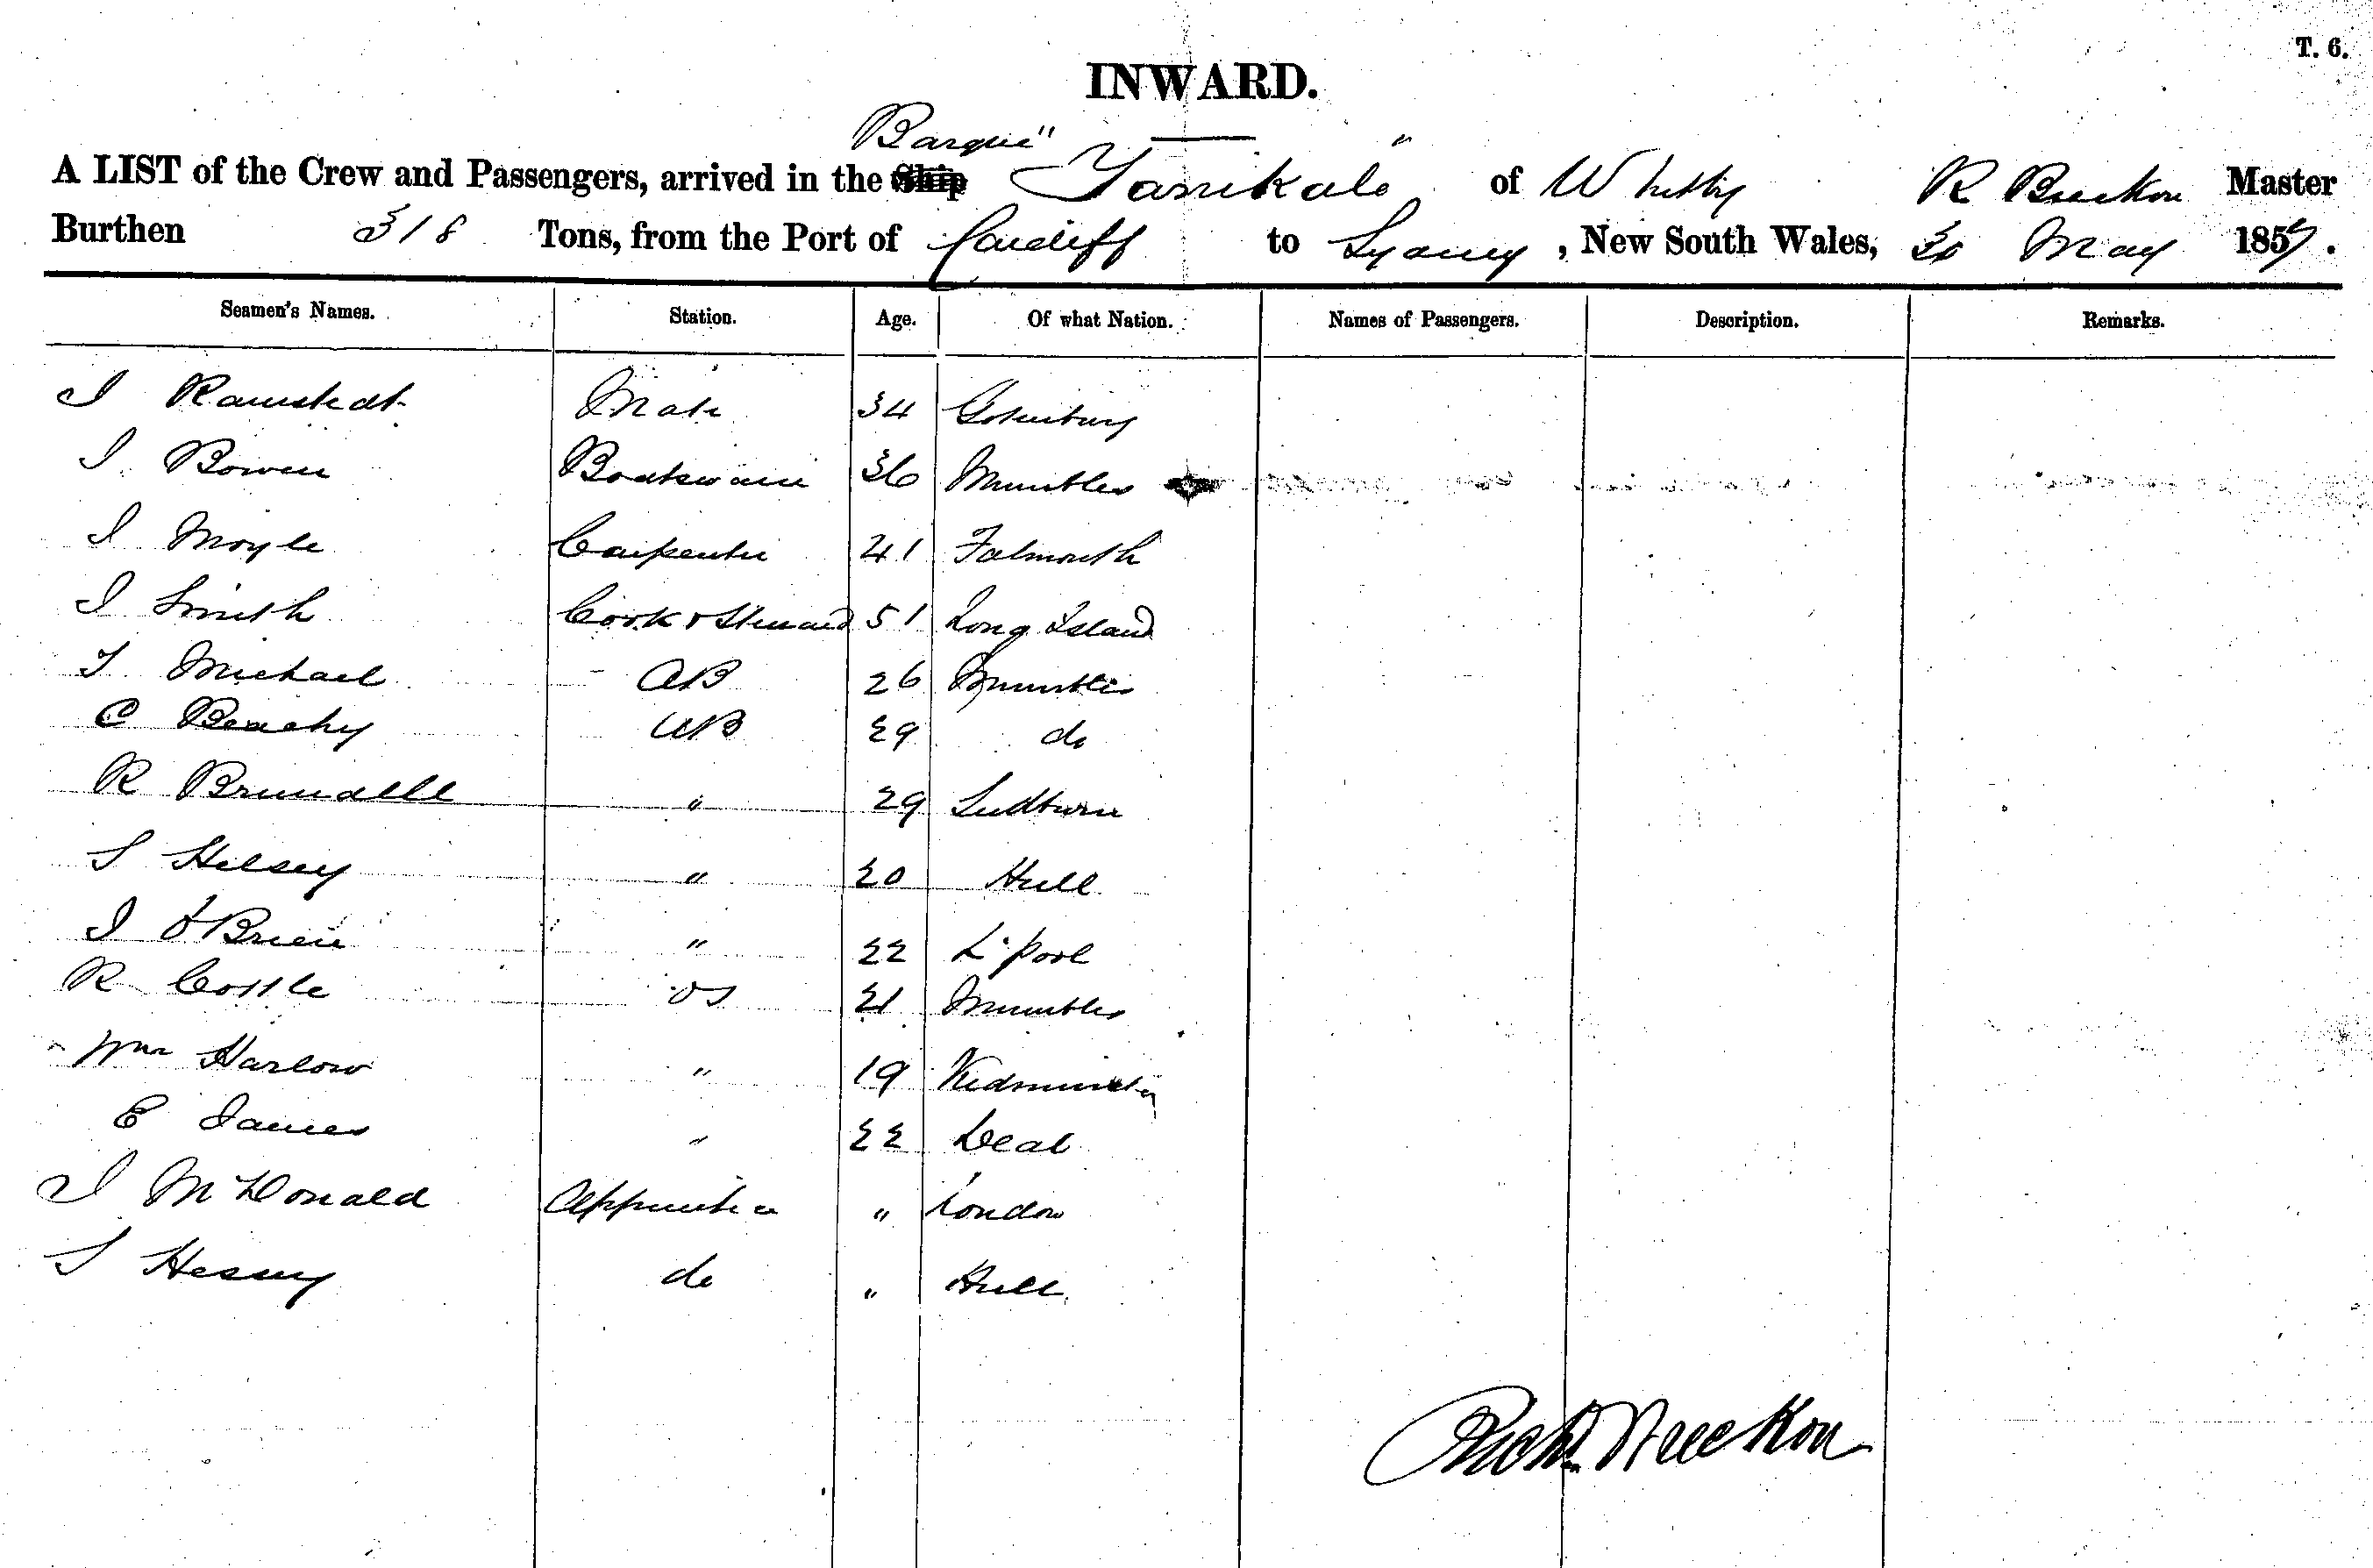 T. 6.
INWARD.
Barque "
A LIST of the Crew and Passengers, arrived in the Ship Yanikale " of Whitby R Breckon Master
Burthen 318 Tons, from the Port of Cardiff to Sydney , New South Wales, 30 May 1859.
Seamen's Names. Station. Age. Of what Nation. Names of Passengers. Description. Remarks.
J Ramstedt Mate 34 Gotenburg
J. Bowen Boatswain 36 Mumbles
J Moyle Carpenter 41 Falmouth
J Smith Cook & Steward 51 Long Island
T Michael AB 26 Mumbles
C Beachy AB 29 do
R Brundell " 29
S Helsey " 20 Hull
J O'Brien " 22 L'pool
R Cottle OS 21 Mumbles
Wm Harlow " 19 Kidminster
E James " 22 Deal
J McDonald Apprentice " London
S Hesey do " Hull
Richd Breckon